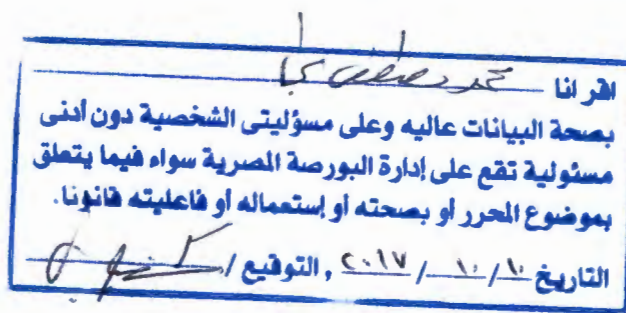 اقر انا محمد مصطفى
بصحة البيانات عاليه وعلى مسؤليتى الشخصية دون أدنى
مسئولية تقع على إدارة البورصة المصرية سواء فيما يتعلق
بموضوع المحرر أو بصحته أو إستعماله أو فاعليته قانونا.
التاريخ ١٠/ ١٠/ ٢٠١٧ , التوقيع /